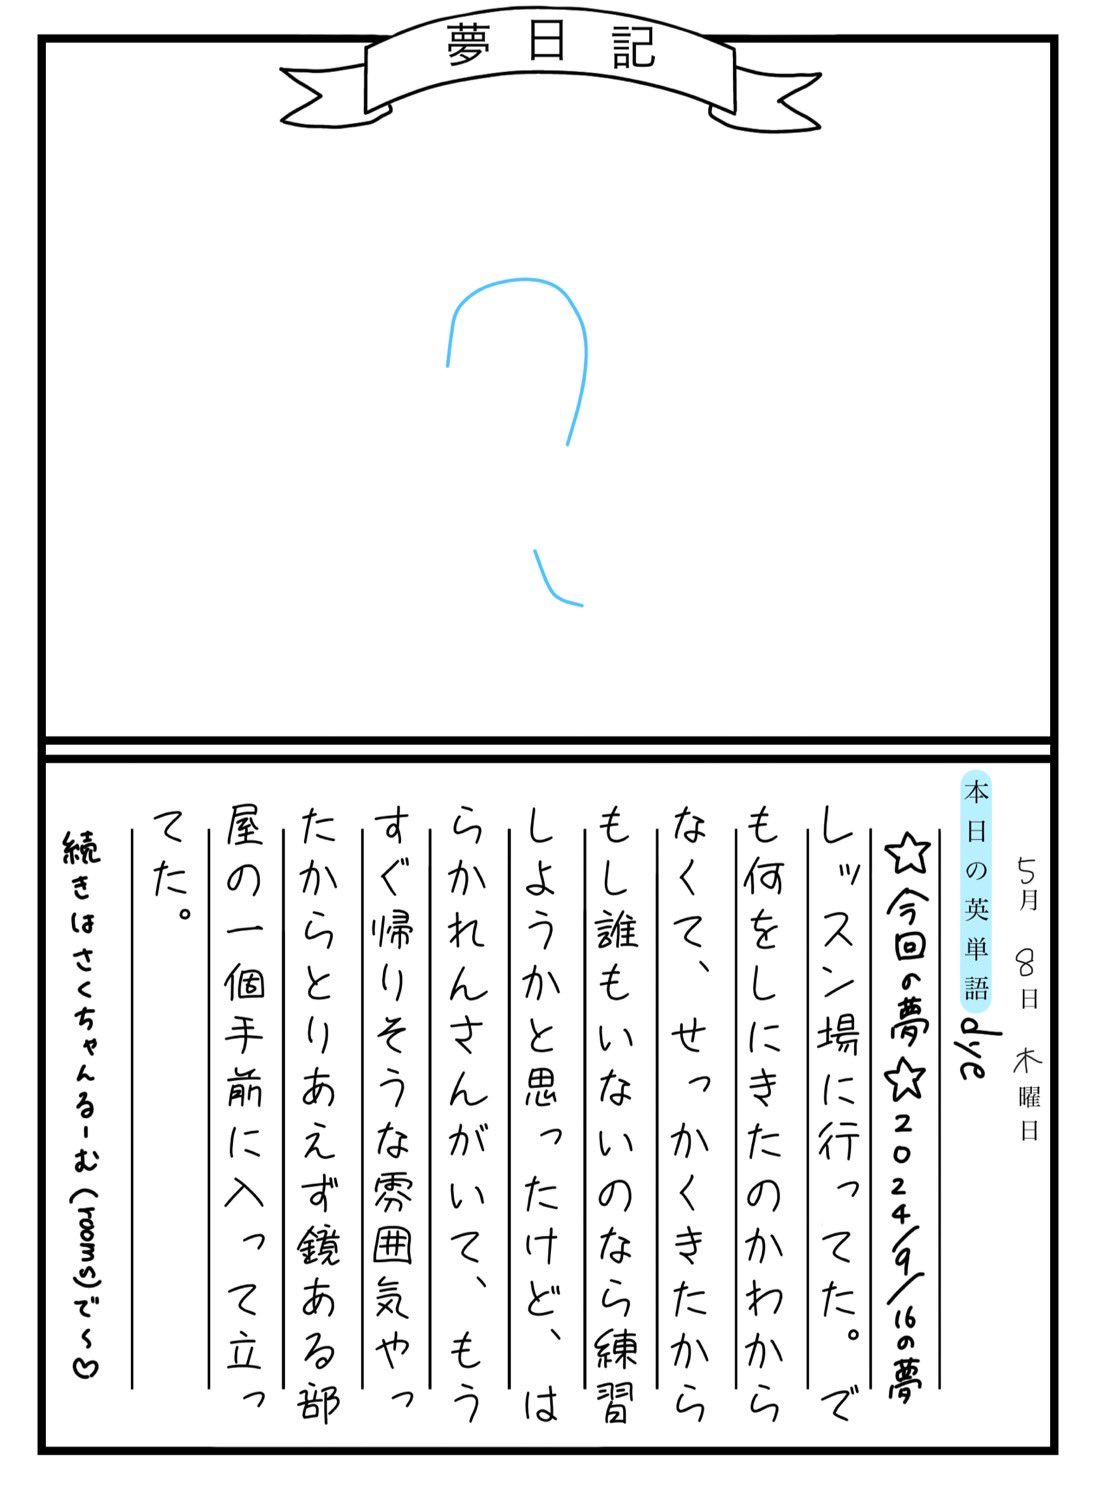 夢日記
5月8日木曜日
本日の英単語 dye
☆今回の夢☆2024/9/16の夢
レッスン場に行ってた。で
も何をしにきたのかわから
なくて、せっかくきたから
もし誰もいないのなら練習
しようかと思ったけど、は
らかれんさんがいて、もう
すぐ帰りそうな雰囲気やっ
たからとりあえず鏡ある部
屋の一個手前に入って立っ
てた。
続きはさくちゃんるーむ(rooms)で〜♡